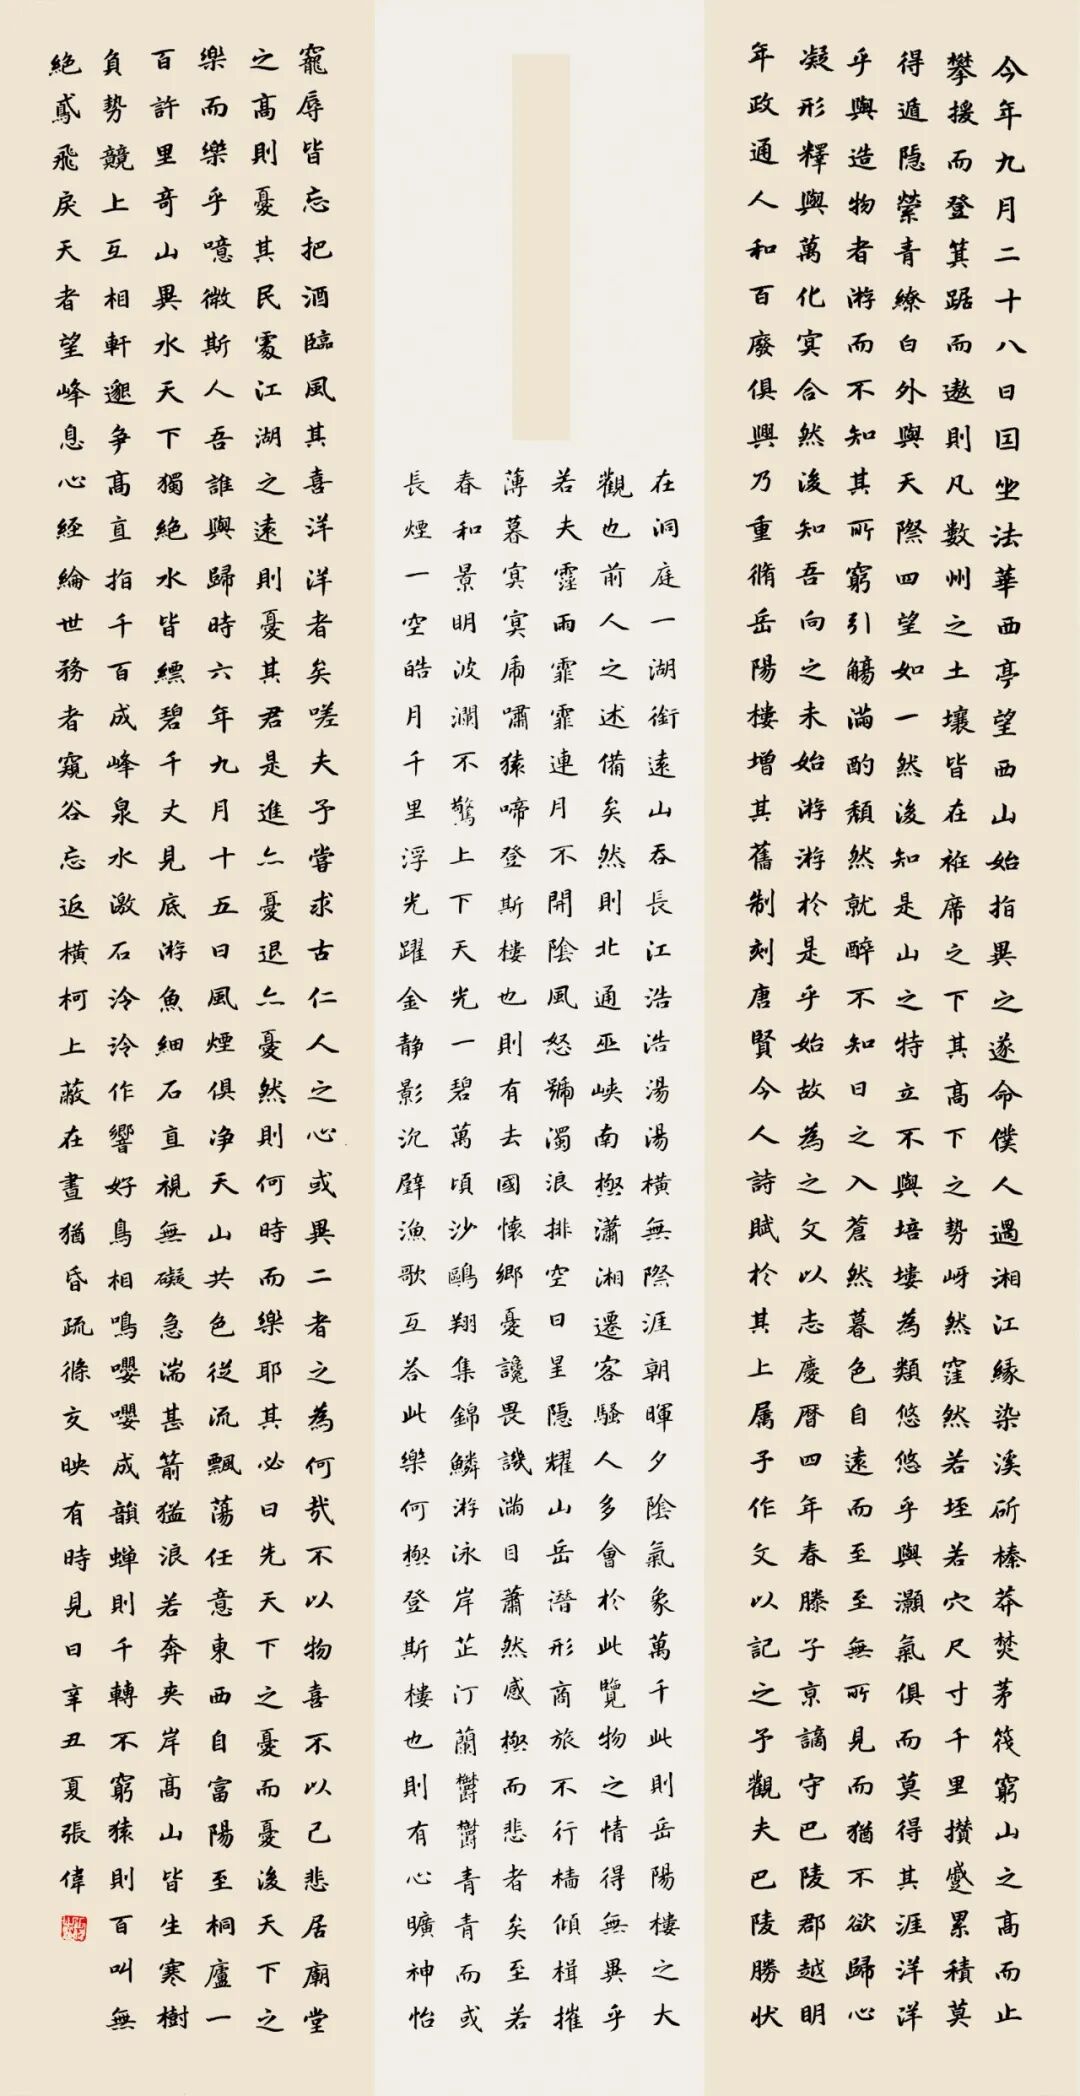 今年九月二十八日囙坐法華西亭望西山始指異之遂命僕人過湘江緣染溪斫榛莽焚茅筏窮山之高而止
攀援而登箕踞而遨則凡數州之土壤皆在袵席之下其高下之勢岈然窪然若垤若穴尺寸千里攢蹙累積莫
得遁隱縈青繚白外與天際四望如一然後知是山之特立不與培塿為類悠悠乎與灝氣俱而莫得其涯洋洋
乎與造物者游而不知其所窮引觴滿酌頹然就醉不知日之入蒼然暮色自遠而至至無所見而猶不欲歸心
凝形釋與萬化冥合然後知吾向之未始游游於是乎始故為之文以志慶曆四年春滕子京謫守巴陵郡越明
年政通人和百廢俱興乃重脩岳陽樓增其舊制刻唐賢今人詩賦於其上属予作文以記之予觀夫巴陵勝狀
在洞庭一湖銜遠山吞長江浩浩湯湯橫無際涯朝暉夕陰氣象萬千此則岳陽樓之大
觀也前人之述備矣然則北通巫峽南極瀟湘遷客騷人多會於此覽物之情得無異乎
若夫霪雨霏霏連月不開陰風怒號濁浪排空日星隱耀山岳潛形商旅不行檣傾楫摧
薄暮冥冥虎嘯猿啼登斯樓也則有去國懷鄉憂讒畏譏滿目蕭然感極而悲者矣至若
春和景明波瀾不驚上下天光一碧萬頃沙鷗翔集錦鱗游泳岸芷汀蘭鬱鬱青青而或
長煙一空皓月千里浮光躍金静影沉璧漁歌互答此樂何極登斯樓也則有心曠神怡
寵辱皆忘把酒臨風其喜洋洋者矣嗟夫予嘗求古仁人之心或異二者之為何哉不以物喜不以己悲居廟堂
之高則憂其民處江湖之遠則憂其君是進亦憂退亦憂然則何時而樂耶其必曰先天下之憂而憂後天下之
樂而樂乎噫微斯人吾誰與歸時六年九月十五日風煙俱净天山共色從流飄蕩任意東西自富陽至桐廬一
百許里奇山異水天下獨絕水皆縹碧千丈見底游魚細石直視無礙急湍甚箭猛浪若奔夾岸高山皆生寒樹
負勢競上互相軒邈爭高直指千百成峰泉水激石泠泠作響好鳥相鳴嚶嚶成韻蟬則千轉不窮猿則百叫無
絕鳶飛戾天者望峰息心經綸世務者窺谷忘返橫柯上蔽在晝猶昏疏條交映有時見日辛丑夏張偉